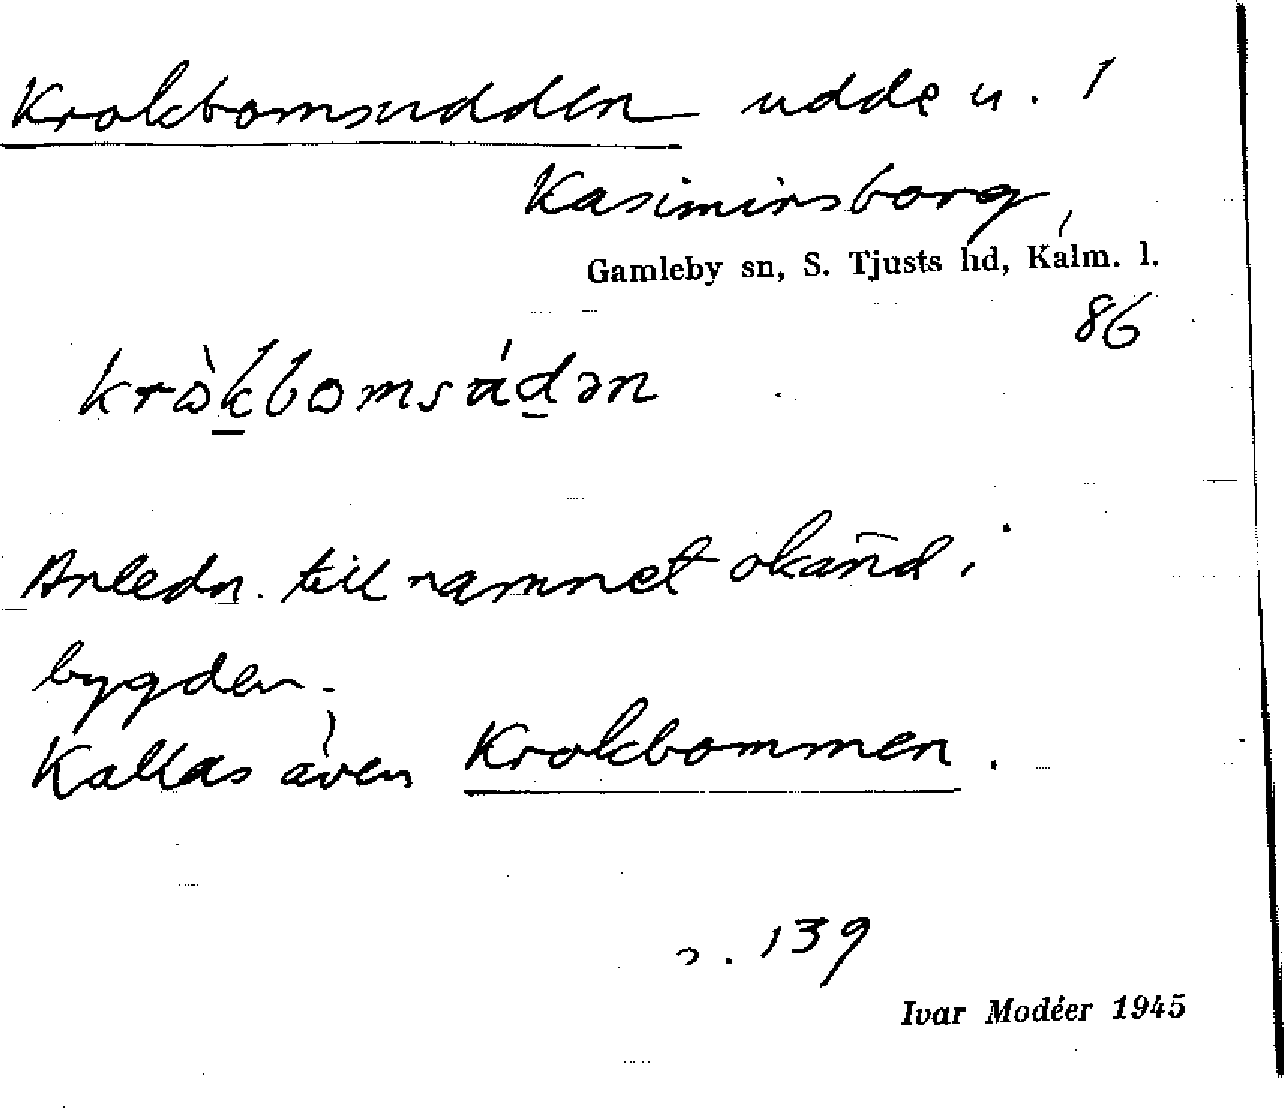 Krokbomsudden udde u. 1
Kasimirsborg,
Gamleby sn, S. Tjusts hd, Kalm. l.
86
kròkbomsúdən
Anledn. till namnet okänd i
bygden.
Kallas även Krokbommen.
s. 139
Ivar Modéer 1945